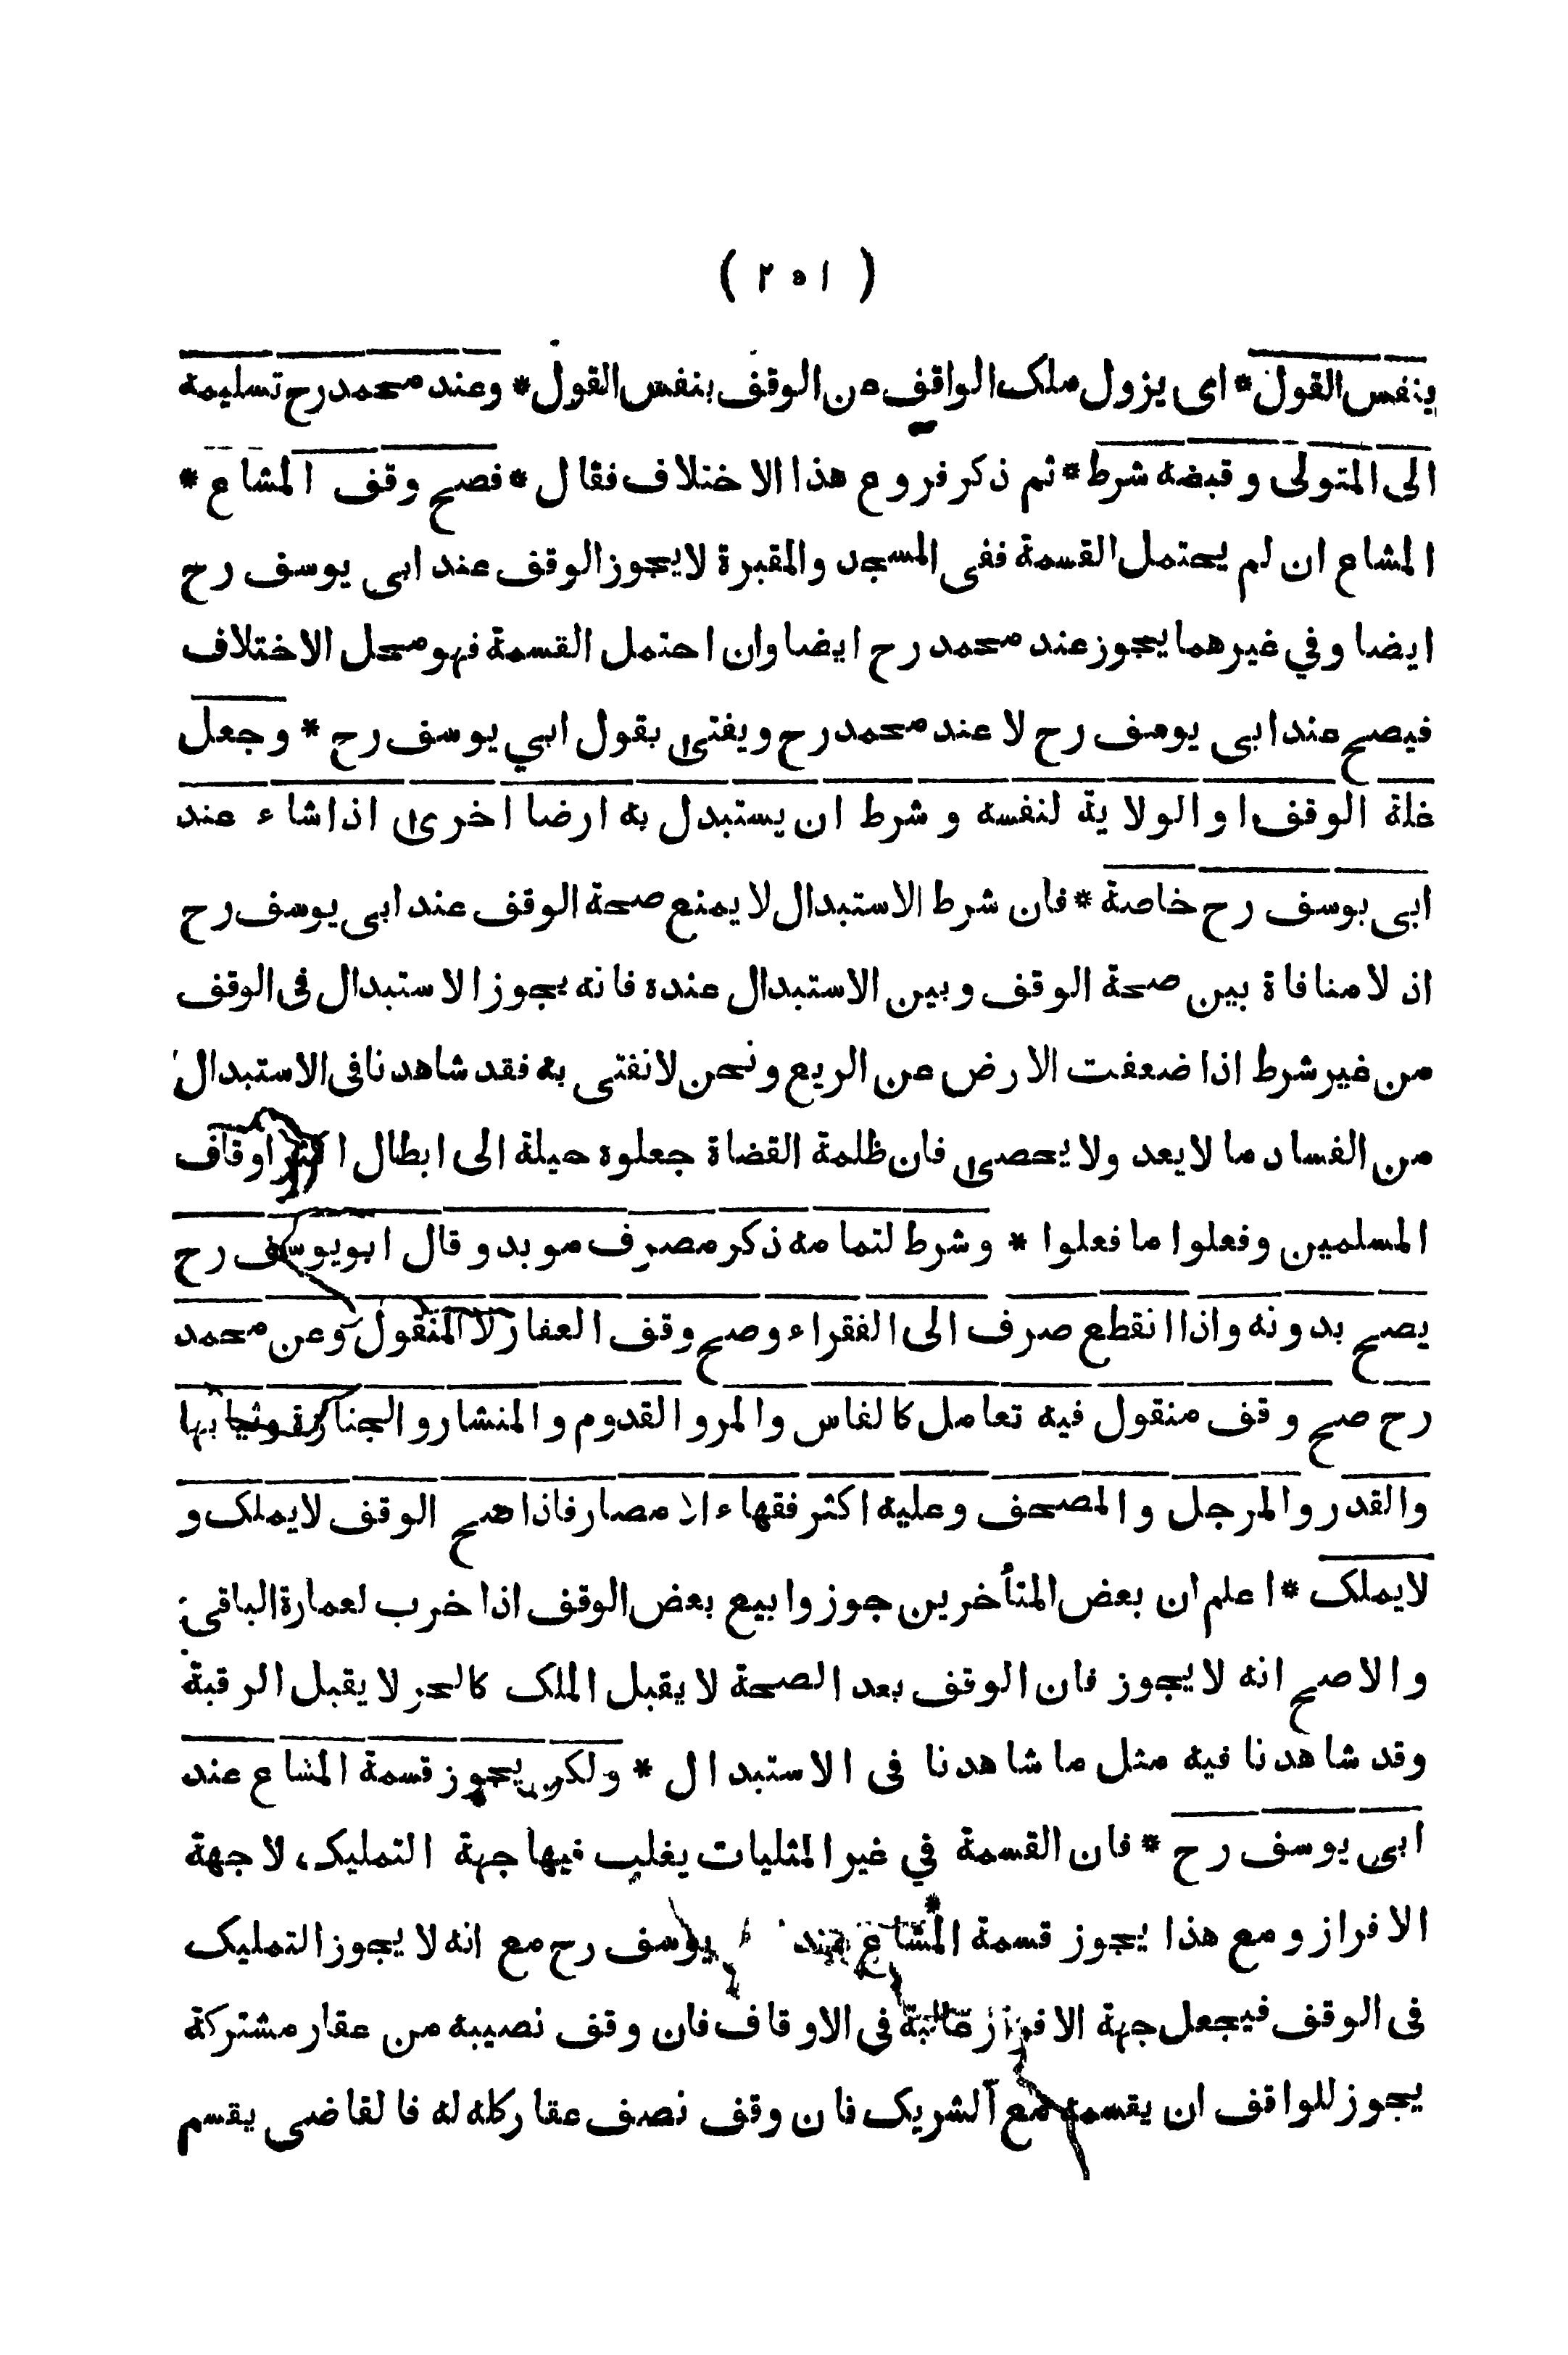 ( ٢٥١ )
بنفس القول * اى يزول ملك الواقف عن الوقف بنفس القول * وعند محمد رح تسليمه
الى المتولى وقبضه شرط * ثم ذكر فروع هذا الاختلاف فقال * فصح وقف المشاع *
المشاع ان لم يحتمل القسمة ففى المسجد والمقبرة لا يجوز الوقف عند ابى يوسف رح
ايضا وفي غيرهما يجوز عند محمد رح ايضا وان احتمل القسمة فهو محل الاختلاف
فيصح عند ابى يوسف رح لا عند محمد رح ويفتى بقول ابي يوسف رح * وجعل
غلة الوقف او الولاية لنفسه وشرط ان يستبدل به ارضا اخرى اذا شاء عند
ابى يوسف رح خاصة * فان شرط الاستبدال لا يمنع صحة الوقف عند ابى يوسف رح
اذ لا منافاة بين صحة الوقف وبين الاستبدال عنده فانه يجوز الاستبدال فى الوقف
من غير شرط اذا ضعفت الارض عن الريع ونحن لا نفتى به فقد شاهدنا فى الاستبدال
من الفساد ما لا يعد ولا يحصى فان ظلمة القضاة جعلوه حيلة الى ابطال اكثر اوقاف
المسلمين وفعلوا ما فعلوا * وشرط لتمامه ذكر مصرف موبد وقال ابو يوسف رح
يصح بدونه واذا انقطع صرف الى الفقراء وصح وقف العقار لا المنقول وعن محمد
رح صح وقف منقول فيه تعامل كالفاس والمر والقدوم والمنشار والجنازة وثيابها
والقدر والمرجل والمصحف وعليه اكثر فقهاء الامصار فاذا صح الوقف لا يملك و
لا يملك * اعلم ان بعض المتأخرين جوزوا بيع بعض الوقف اذا خرب لعمارة الباقى
والاصح انه لا يجوز فان الوقف بعد الصحة لا يقبل الملك كالحر لا يقبل الرقبة
وقد شاهدنا فيه مثل ما شاهدنا فى الاستبدال * ولكن يجوز قسمة المشاع عند
ابى يوسف رح * فان القسمة في غير المثليات يغلب فيها جهة التمليك، لا جهة
الافراز ومع هذا يجوز قسمة المشاع عند يوسف رح مع انه لا يجوز التمليك
فى الوقف فيجعل جهة الافراز غالبة فى الاوقاف فان وقف نصيبه من عقار مشتركة
يجوز للواقف ان يقسمه مع الشريك فان وقف نصف عقار كله له فالقاضى يقسم